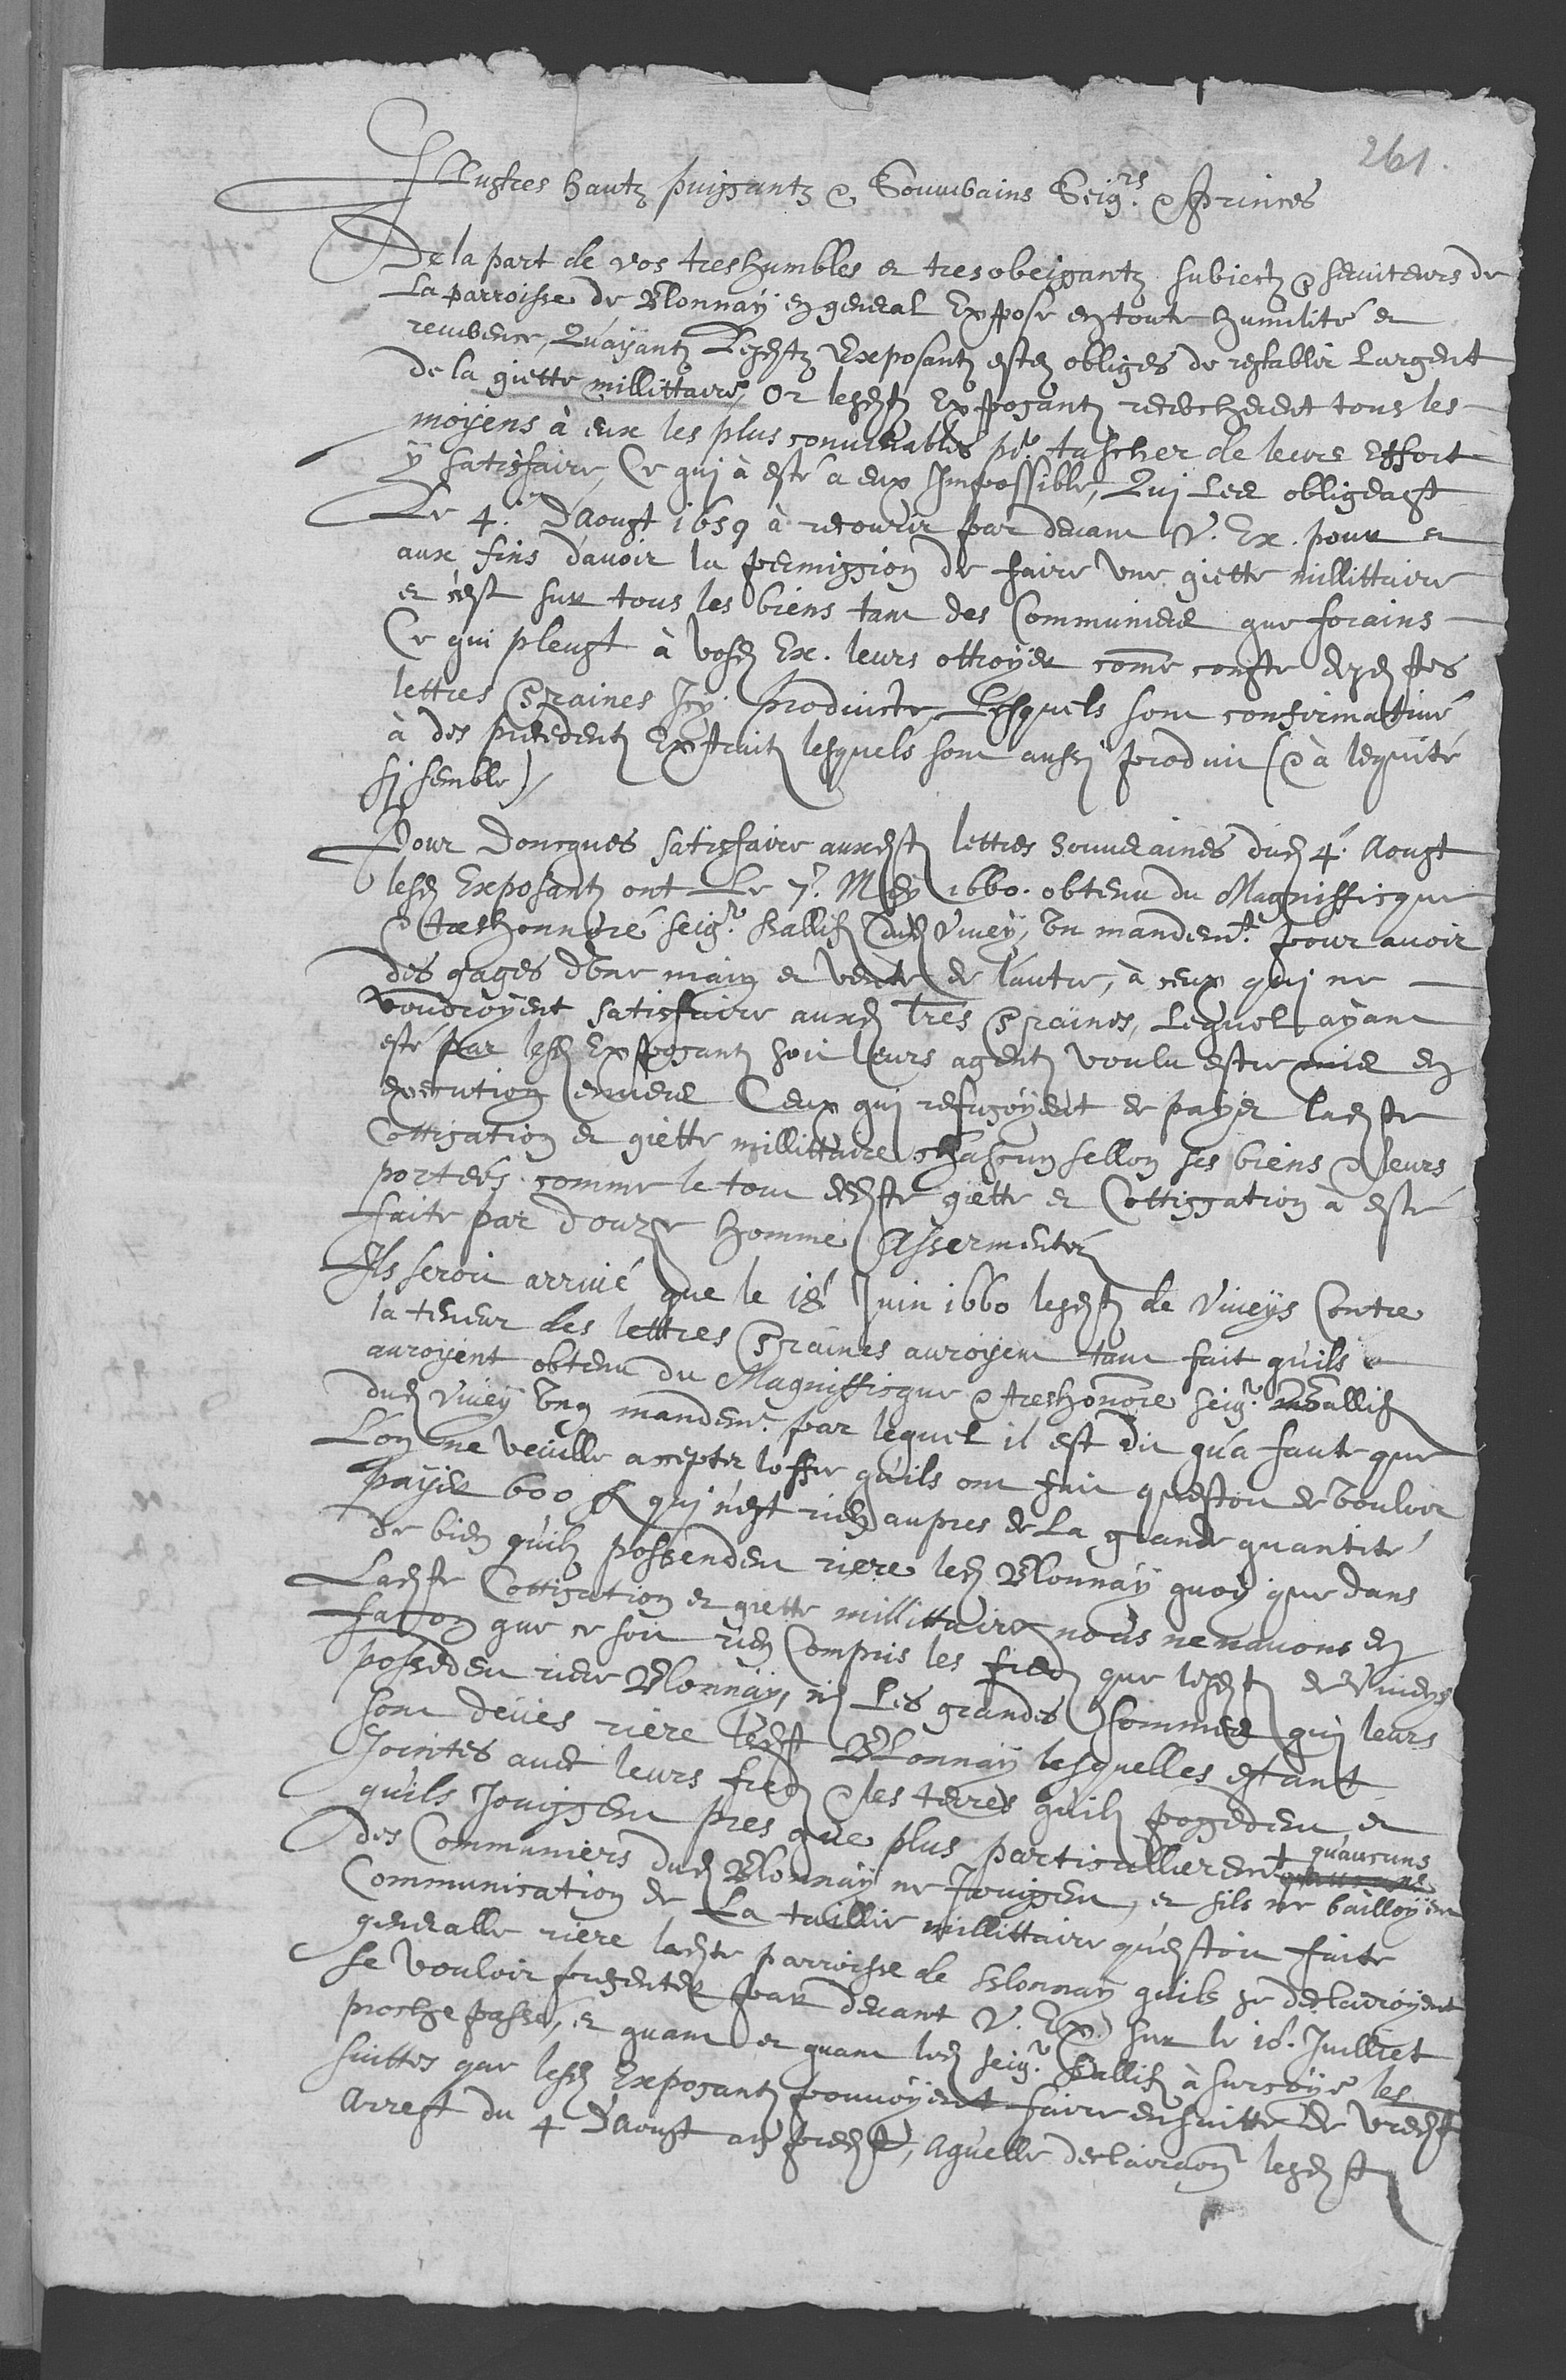 261.
Illustres hautz puissantz & Souverains Seig.rs & Princes
De la part de vos treshumbles et tresobeissantz subiectz & serviteurs de
La parroisse de Blonnaÿ en general Expose en toute humilité et
reverence, Qu'aÿantz Lesdtz Exposantz estez obliges de restablir Largent
de la giette millittaire, Or lesdtz Exposantz recercherent tous les
moÿens à eux les plus convenables pr. tascher de leurs Effort
ÿ satisfaire, Ce qui à esté a eux Impossible, Qui Les obligeast
Le 4.e D'Aoust 1659 à recourir par devant V. Ex. pour et
aux fins d'avoir la permission de faire une giette millittaire
et c'est sur tous les biens tant des Communiers que forains
Ce qui pleust à vosd Ex. leurs ottroÿer come conste desdtes
lettres Sraines Icy producte, Lesquels sont confirmative
à des precedentz Extraitz lesquels sont aussi produit (& à lequité
si semble)
Pour doncques satisfaire auxdt lettres Souveraines dud 4.e Aoust
lesd Exposantz ont Le 7.e Meÿ 1660. obtenu du Magnifficque
& treshonnoré seig.r Ballif dud Viveÿ, Un mandemt. pour avoir
des gages d'une main et vente de l'autre, à ceux qui ne
voudroÿent satisfaire auxd Lres Sraines, Lequel aÿant
esté par lesd Exposantz soit leurs agentz voulu estre mis en
execution envers Ceux qui refusoÿent de paÿer ladte
Cottisation et giette millittaire chascun sellon ses biens & leurs
portées. comme le tout dedte giette et Cottissation à esté
faite par douze homme Assermentéz
Ils seroit arrivé que le 18.e Juin 1660 lesdtz de Viveÿs Contre
la teneur des lettres Sraines auroÿent tant fait qu'ils
auroÿent obtenu du Magnifficque & treshonnore seig.r Ballif
dud Viveÿ Ung mandemt. par lequel il est dit qu'a faute que
L'on ne veuille accepter l'offre qu'ils ont fait questoit de vouloir
paÿer 600 ff qui n'est rien aupres de La grande quantité
de bien quilz possendent riere led Blonnaÿ quoÿ que dans
Ladte Cottisation et giette millittaire nous ne navons en
facon que ce soit rien Compris les fiedz que lesdt de Viveÿs
possedent riere Blonnaÿ, nÿ Les grandes sommes qui leurs
sont deües riere ledt Blonnaÿ lesquelles estant
Jointes avec leurs fiedz & les terres quilz possedent et
qu'ils Jouissent pres que plus particullierent + quaucuns
des Communiers dud Blonnaÿ ne Jouissent, et sils ne bailloÿent
Communication de La taillie millittaire qu'estoit faite
generalle riere ladte parroisse de Blonnaÿ quils se declairoÿent
se vouloir presenter par devant V. Ex. sur le 18. Juilliet
proche passé, et quant et quant led seig.r Ballif à sursoÿe les
suittes que lesd Exposantz pouvoÿent faire ensuitte de vredt
Arrest du 4 D'Aoust an predt, Aquelle declairaon lesdt